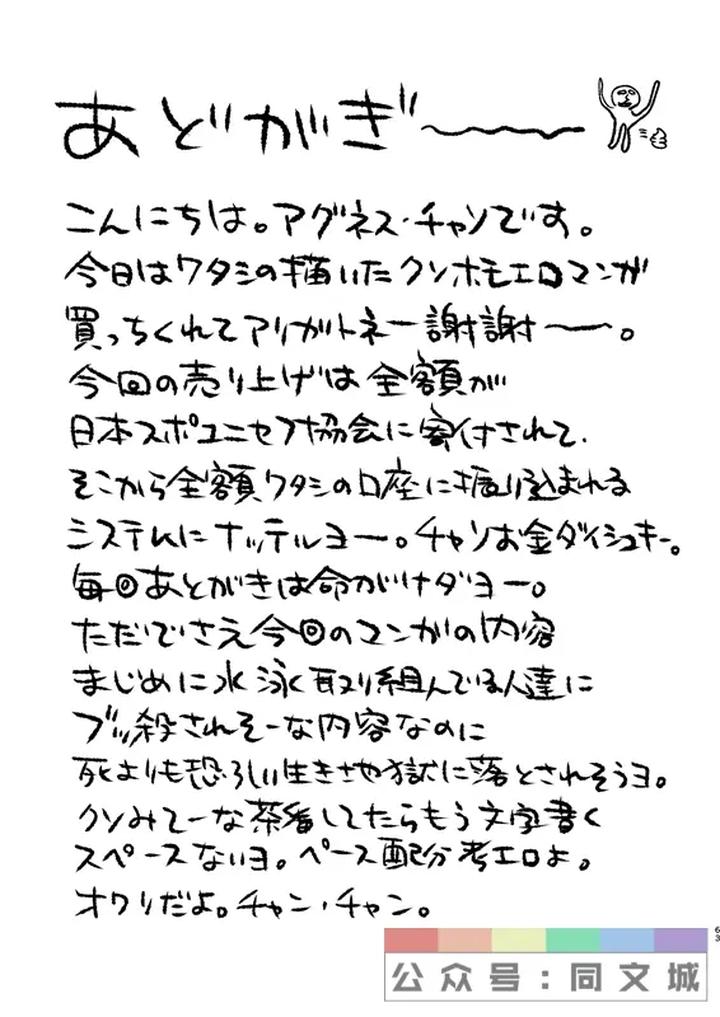 あどがぎ〜〜〜
こんにちは。アグネス・チャンです。
今日はワタシの描いたクソホモエロマンガ
買っちくれてアリガトネー謝謝〜〜。
今回の売り上げは全額が
日本スポユニセフ協会に寄付されて、
そこから全額ワタシの口座に振り込まれる
システムにナッテルヨー。チャンお金ダイシュキー。
毎回あとがきは命がけダヨー。
ただでさえ今回のマンガの内容
まじめに水泳取り組んでいる人達に
ブッ殺されそーな内容なのに
死よりも恐ろしい生き地獄に落とされそうヨ。
クソみてーな茶番してたらもう文字書く
スペースないヨ。ペース配分考エロよ。
オワリだよ。チャン・チャン。
63
公众号:同文城